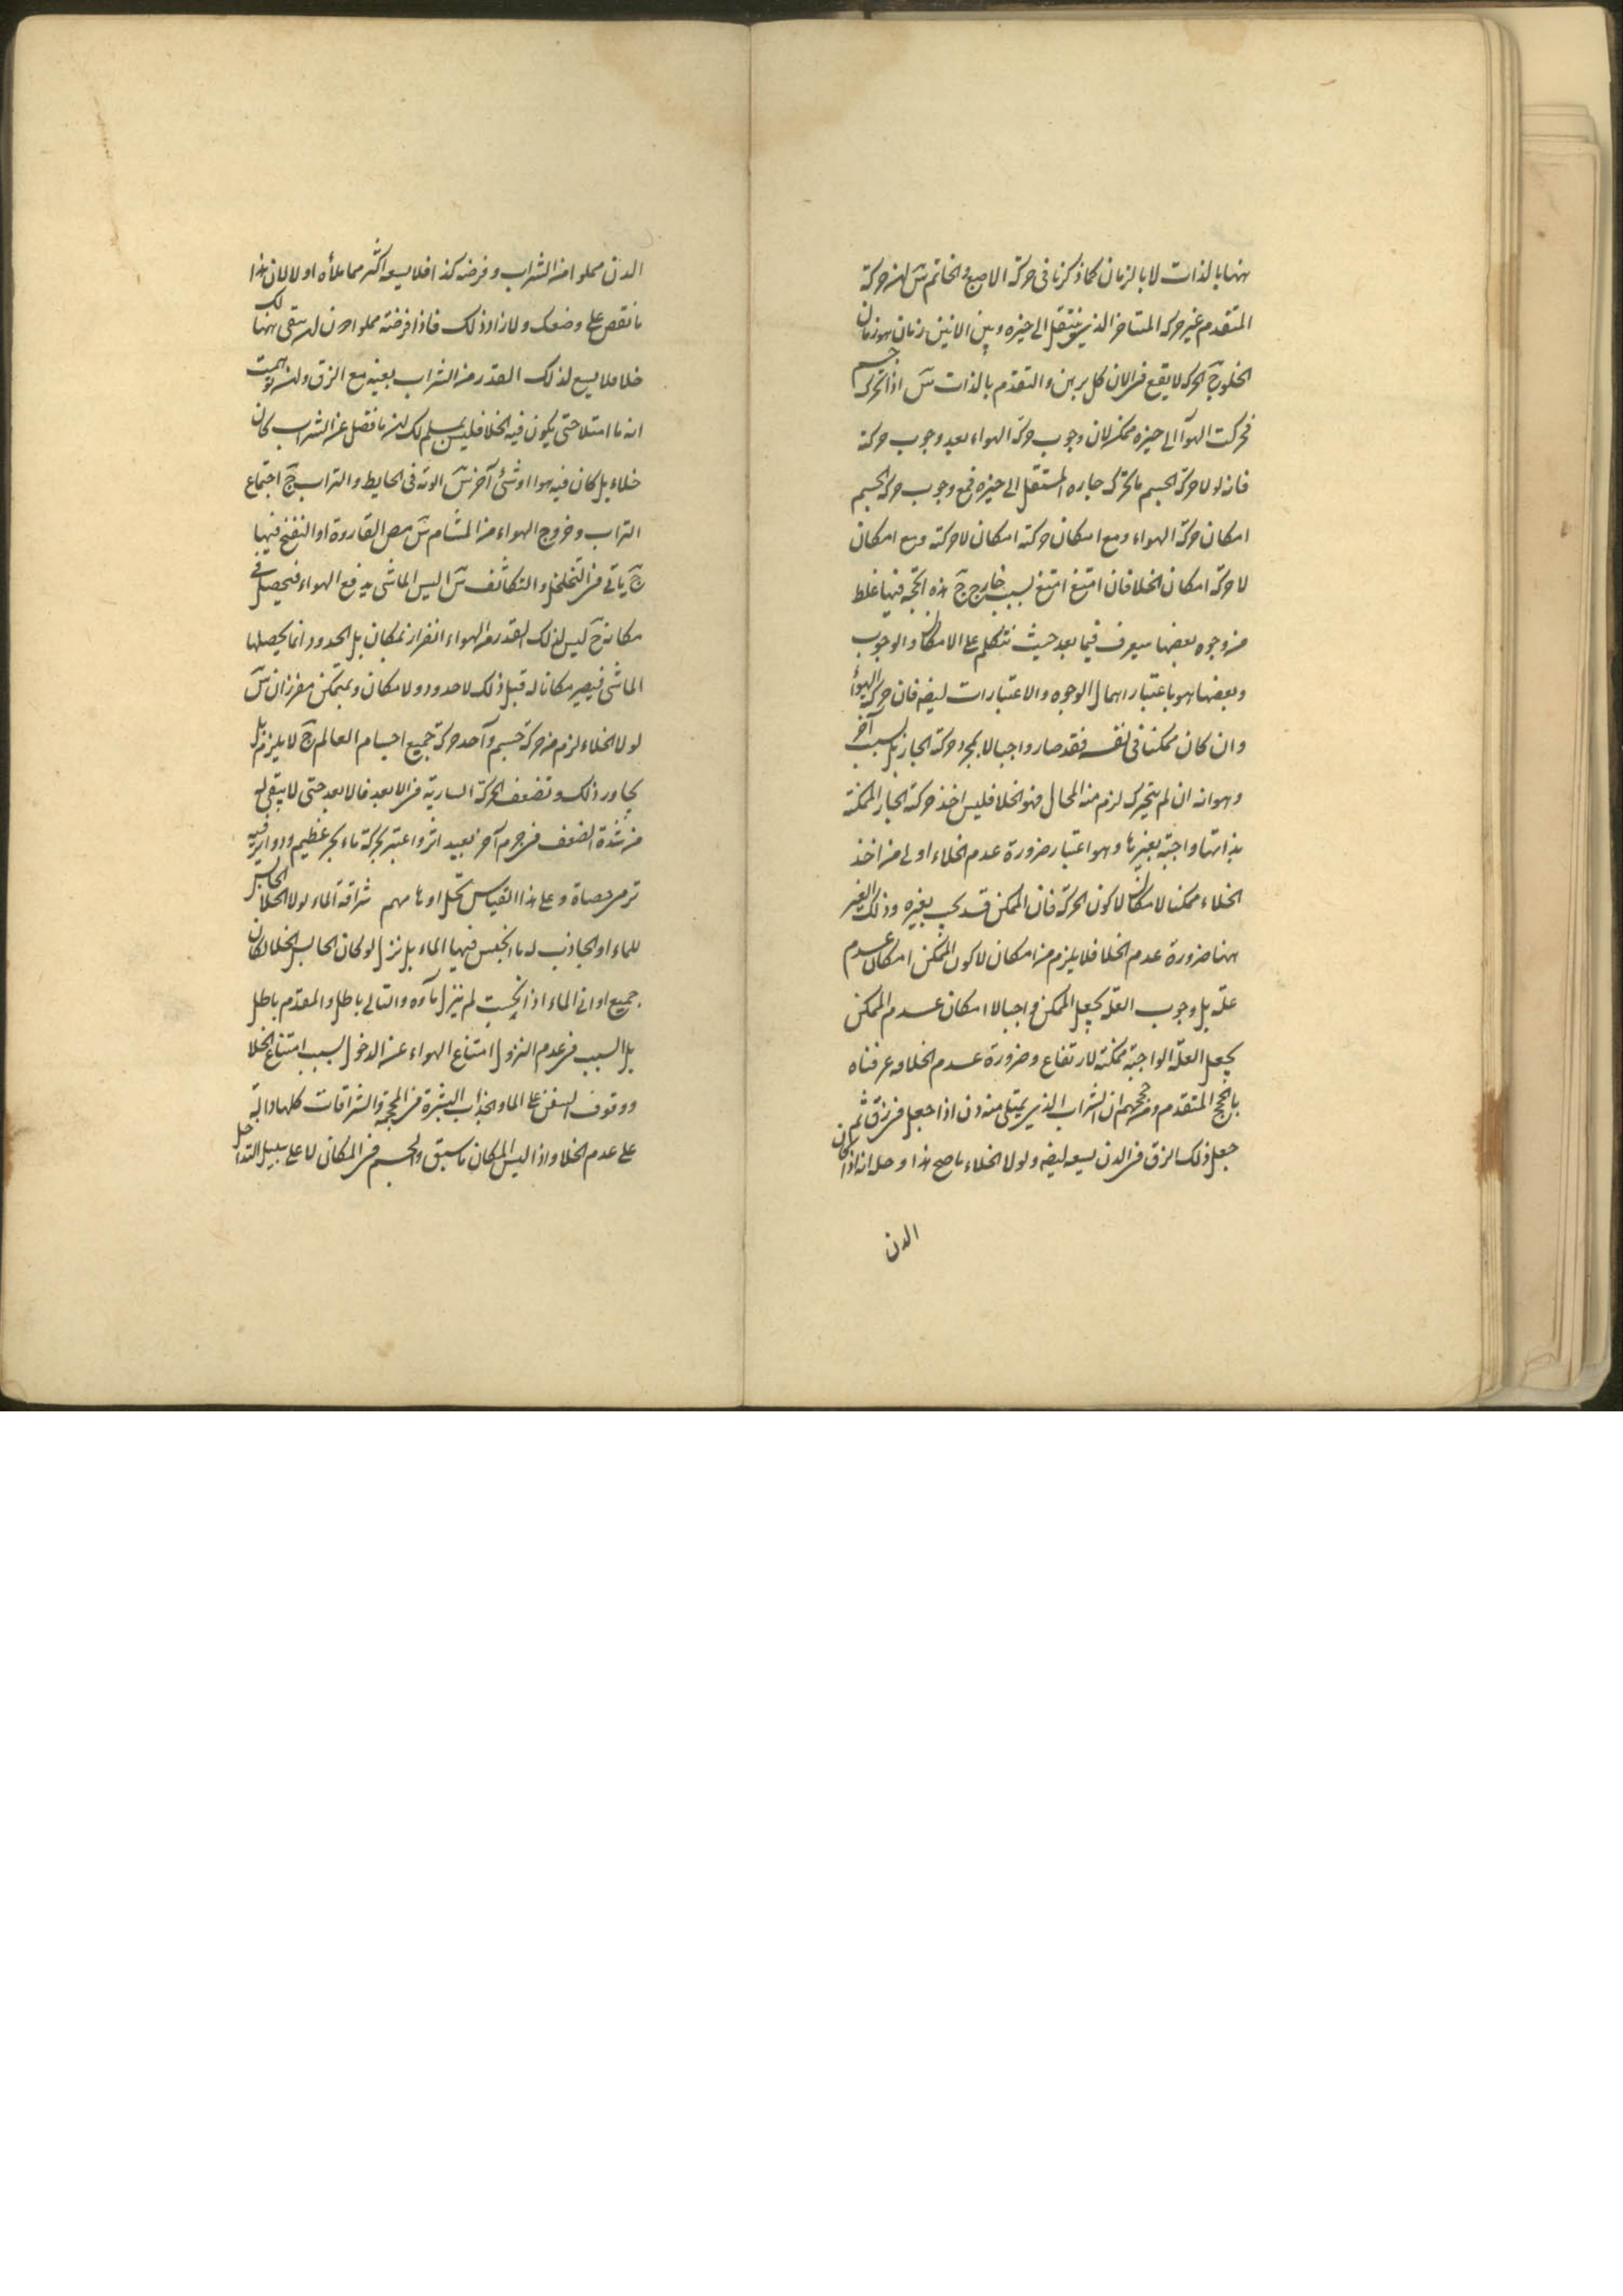 ههنا بالذات لا بالزمان كما ذكرنا في حركة الاصبع والخاتم س ان حركة
المتقدم غير حركة المتاخر الذى ينتقل الى حيزه وبين الانين زمان هو زمان
الخلو ج الحركة لا يقع فى الان كل برهن والتقدم بالذات س اذا تحرك جسم
فحركت الهوآ الى حيزه ممكن لان وجوب حركة الهواء بعد وجوب حركة
فانه لولا حركة الجسم ما تحرك جاره المستقل الى حيزه فمع وجوب حركة الجسم
امكان حركة الهواء ومع امكان حركته امكان لا حركته ومع امكان
لا حركته امكان الخلا فان امتنع امتنع لسبب خارج ج هذه الحجة فيها غلط
من وجوه بعضها سيعرف فيما بعد حيث نتكلم على الامكان والوجوب
وبعضها هو باعتبار اهمال الوجوه والاعتبارات ايضا فان حركة الهوآء
وان كان ممكنا فى نفسه فقد صار واجبا لا بمجرد حركة الجار بل لسبب آخر
وهو انه ان لم يتحرك لزم منه المحال فهو الخلا فليس اخذ حركة الجار الممكنة
بذاتها واجبة بغيرها وهو اعتبار ضرورة عدم الخلاء اولى من اخذ
الخلاء ممكنا لامكان لا كون الحركة فان الممكن قد يجب بغيره وذلك الغير
ههنا ضرورة عدم الخلا فلا يلزم من امكان لا كون الممكن امكان عدم
علته بل وجوب العلة يجعل الممكن واجبا لا امكان عدم الممكن
يجعل العلة الواجبة ممكنة لارتفاع وضرورة عدم الخلا قد عرفناه
بالحجج المتقدم ومن حججهم ان الشراب الذى يمتلى منه دن اذا جعل فى زق ثم
جعل ذلك الزق فى الدن يسعه ايضا ولولا الخلاء ما صح هذا وحل انه اذا كان
الدن
الدن مملوا من الشراب وفرضه كذا فلا يسع اكثر مما ملأه اولا لان هذا
ما نقص على وضعك ولا زاد ذلك فاذا فرضته مملوا دن له يبقى ههنا لك
خلا فلا يسع لذلك القدر من الشراب بعينه مع الزق ولئن توهمت
انه ما امتلا حتى يكون فيه الخلا فليس يسلم لك ان ما فضل عن الشراب كان
خلاء بل كان فيه هوا او شئ آخر س الوتد فى الحايط والتراب ج اجتماع
التراب وخروج الهواء من المسام س مص القارورة او النفخ فيها
ج ياتى فى التخلخل والتكاثف س اليس الماشى يدفع الهواء فيحصل فى
مكانه ج ليس لذلك القدر من الهواء انفراز بمكان بل الحدود انما يحصلها
الماشى فيصير مكانا له قبل ذلك لا حدود ولا مكان ومتمكن مفرزان س
لولا الخلاء لزم من حركة جسم واحد حركة جميع اجسام العالم ج لا يلزم بل
يجاور ذلك وتضعف الحركة السارية فى الابعد فالابعد حتى لا يبقى له
من شدة الضعف فى جرم آخر بعيد اثر واعتبر بحركة ماء بحر عظيم ودواير فيه
ترمى حصاة وعلى هذا القياس تحل اوهامهم سراقة الماء لولا الخلا الحابس
للماء او الجاذب له ما انحبس فيها الماء بل نزل لو كان الحابس الخلا لكان
جميع اوانى الماء اذا انكبت لم ينزل مآوه والتالى باطل والمقدم باطل
بل السبب فى عدم النزول امتناع الهواء عن الدخول لسبب امتناع الخلا
ووقوف السفن على الما وانجذاب البشرة فى المحجمة والسراقات كلها دالة
على عدم الخلا واذا ليس المكان ما سبق والجسم فى المكان لا على سبيل التداخل